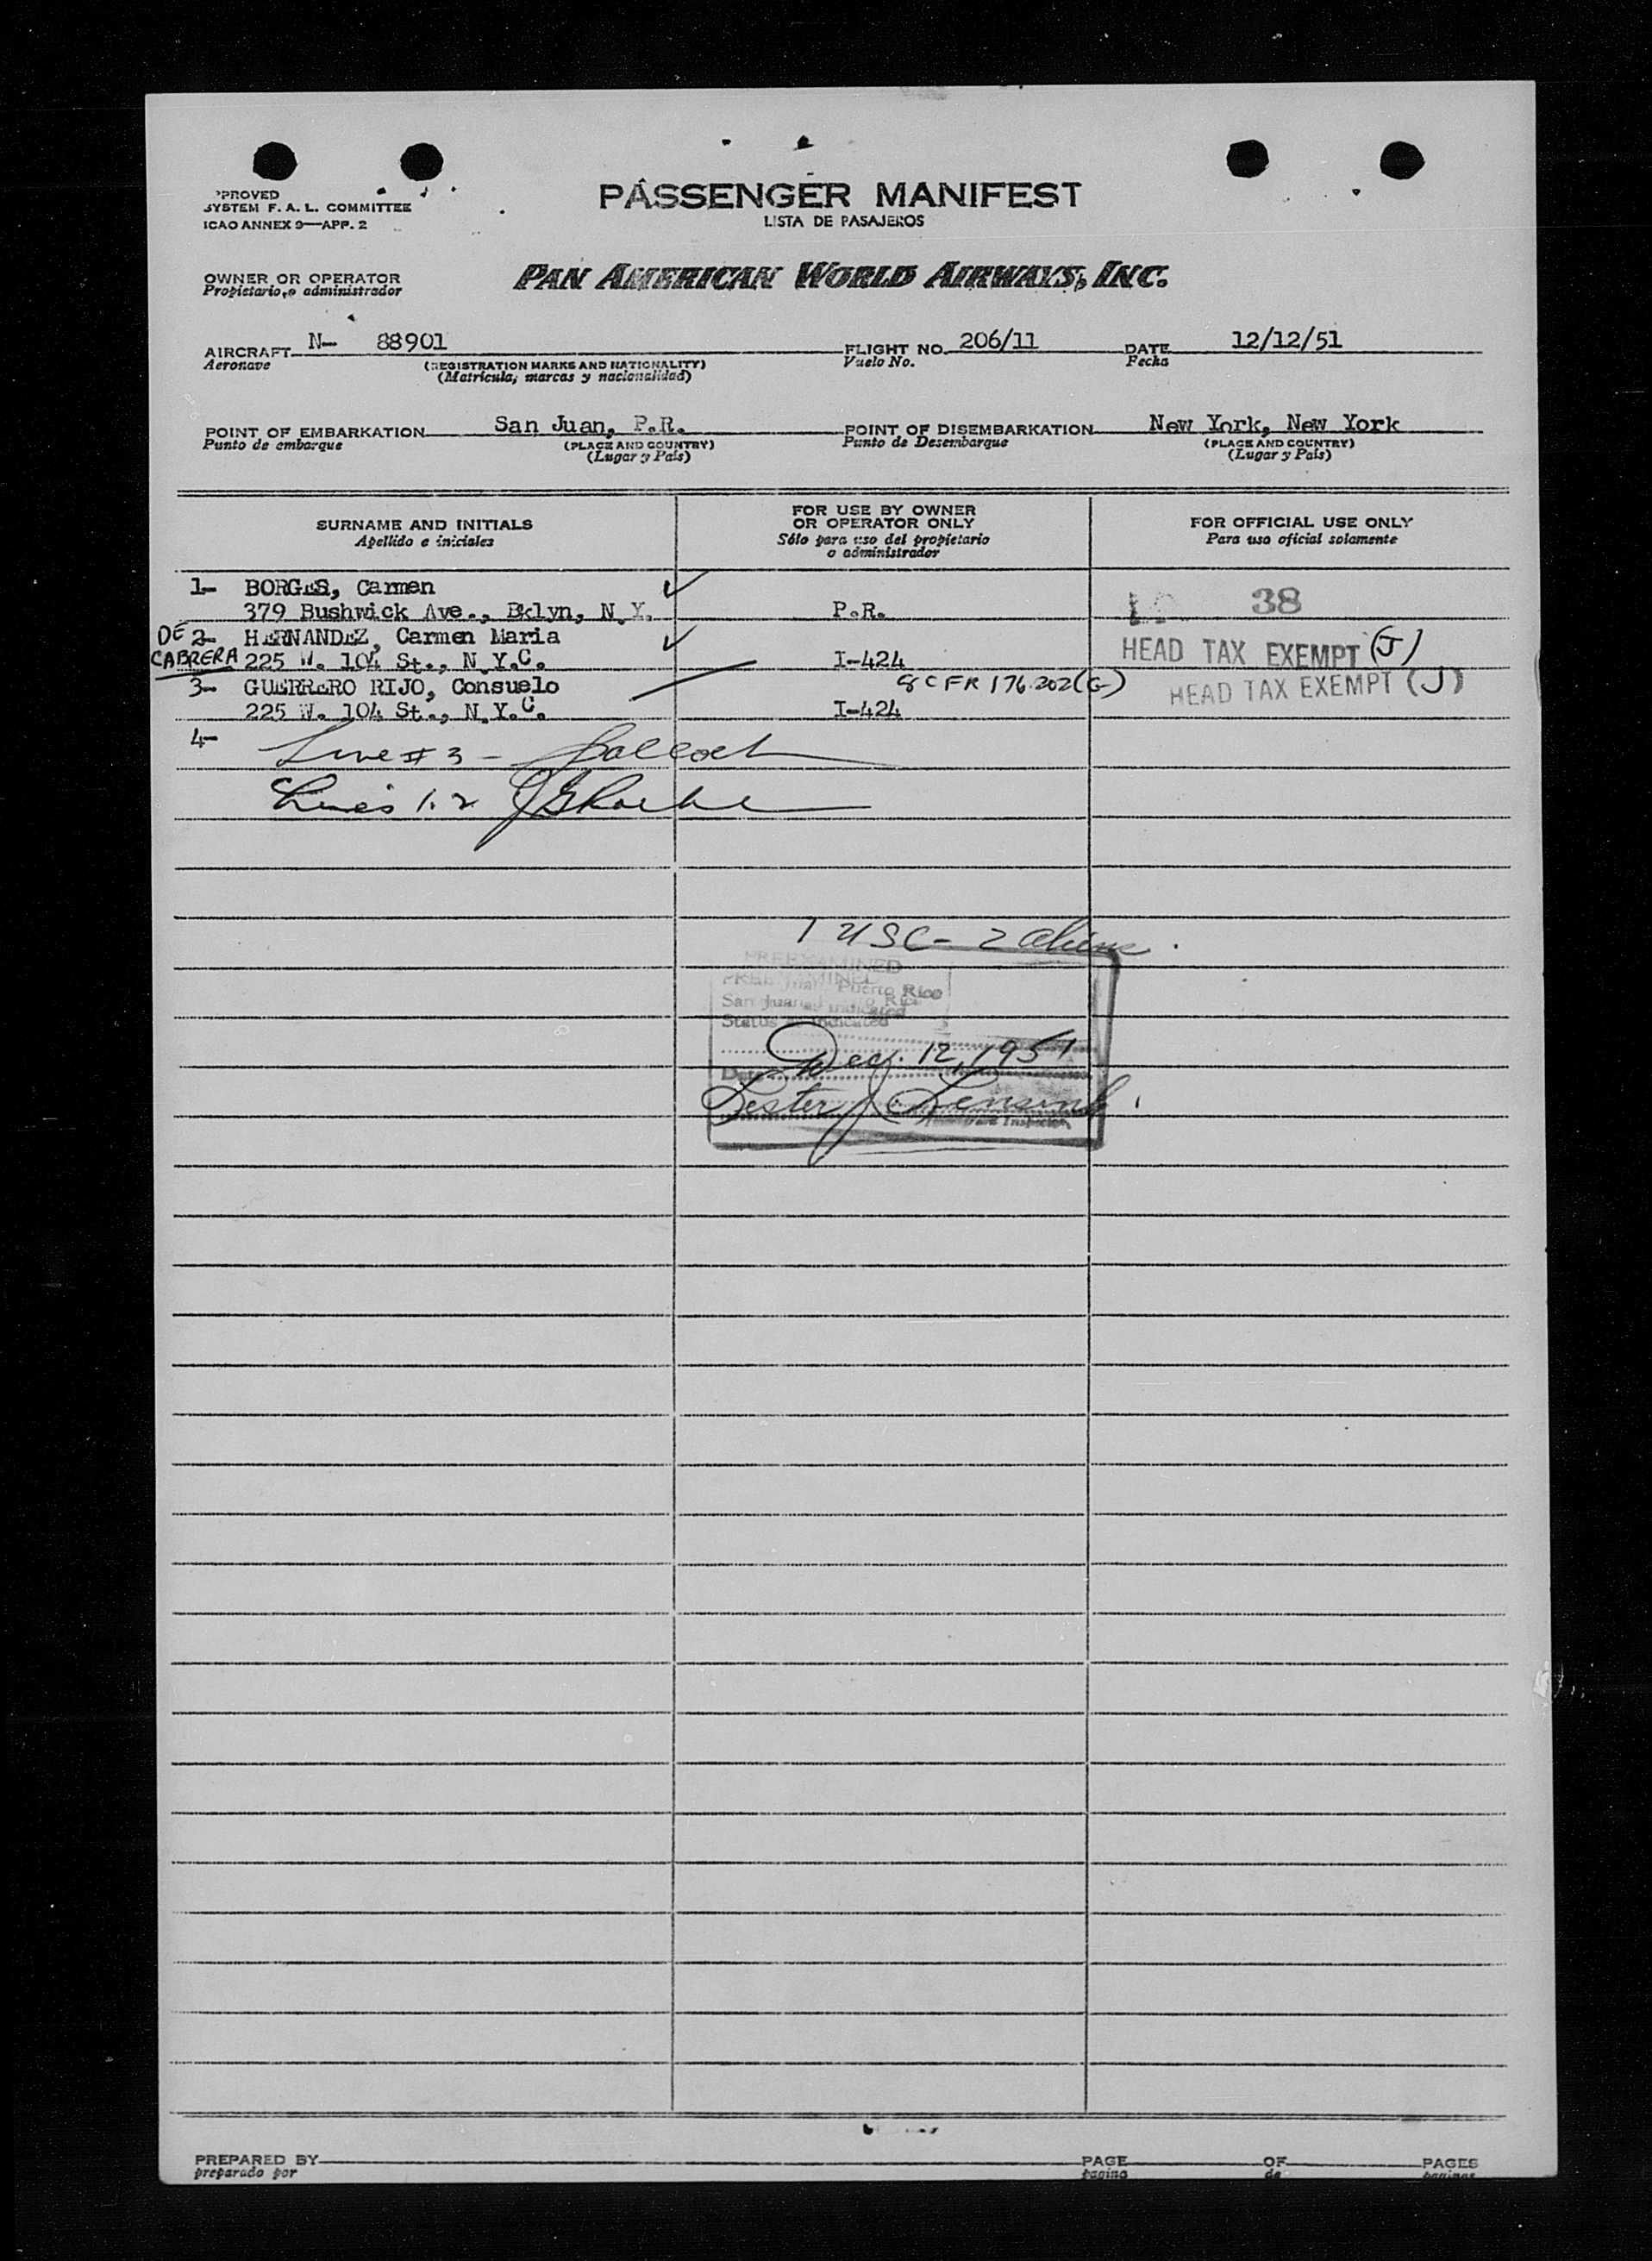 PROVED
SYSTEM F. A. L. COMMITTEE
ICAO ANNEX 9—APP. 2
PASSENGER MANIFEST
LISTA DE PASAJEROS
OWNER OR OPERATOR
Propietario, o administrador
PAN AMERICAN WORLD AIRWAYS, INC.
AIRCRAFT N- 88901 FLIGHT NO. 206/11 DATE 12/12/51
Aeronave (REGISTRATION MARKS AND NATIONALITY) Vuelo No. Fecha
(Matrícula, marcas y nacionalidad)
POINT OF EMBARKATION San Juan, P.R. POINT OF DISEMBARKATION New York, New York
Punto de embarque (PLACE AND COUNTRY) Punto de Desembarque (PLACE AND COUNTRY)
(Lugar y País) (Lugar y País)
SURNAME AND INITIALS FOR USE BY OWNER OR OPERATOR ONLY FOR OFFICIAL USE ONLY
Apellido e iniciales Sólo para uso del propietario o administrador Para uso oficial solamente
1- BORGES, Carmen
379 Bushwick Ave., Bklyn, N.Y. P.R. 38
DE 2- HERNANDEZ, Carmen Maria
CABRERA 225 W. 104 St., N.Y.C. I-424 HEAD TAX EXEMPT (J)
3- GUERRERO RIJO, Consuelo 8 CFR 176.202(G) HEAD TAX EXEMPT (J)
225 W. 104 St., N.Y.C. I-424
4-
Line # 3 -
Lines 1.2
1 USC - 2 aliens.
PREEXAMINED
PREEXAMINED
San Juan, Puerto Rico
San Juan, Puerto Rico
Status as indicated
Dec. 12, 1951
Date
Lester J.
Inspector
PREPARED BY PAGE OF PAGES
preparado por pagina de paginas